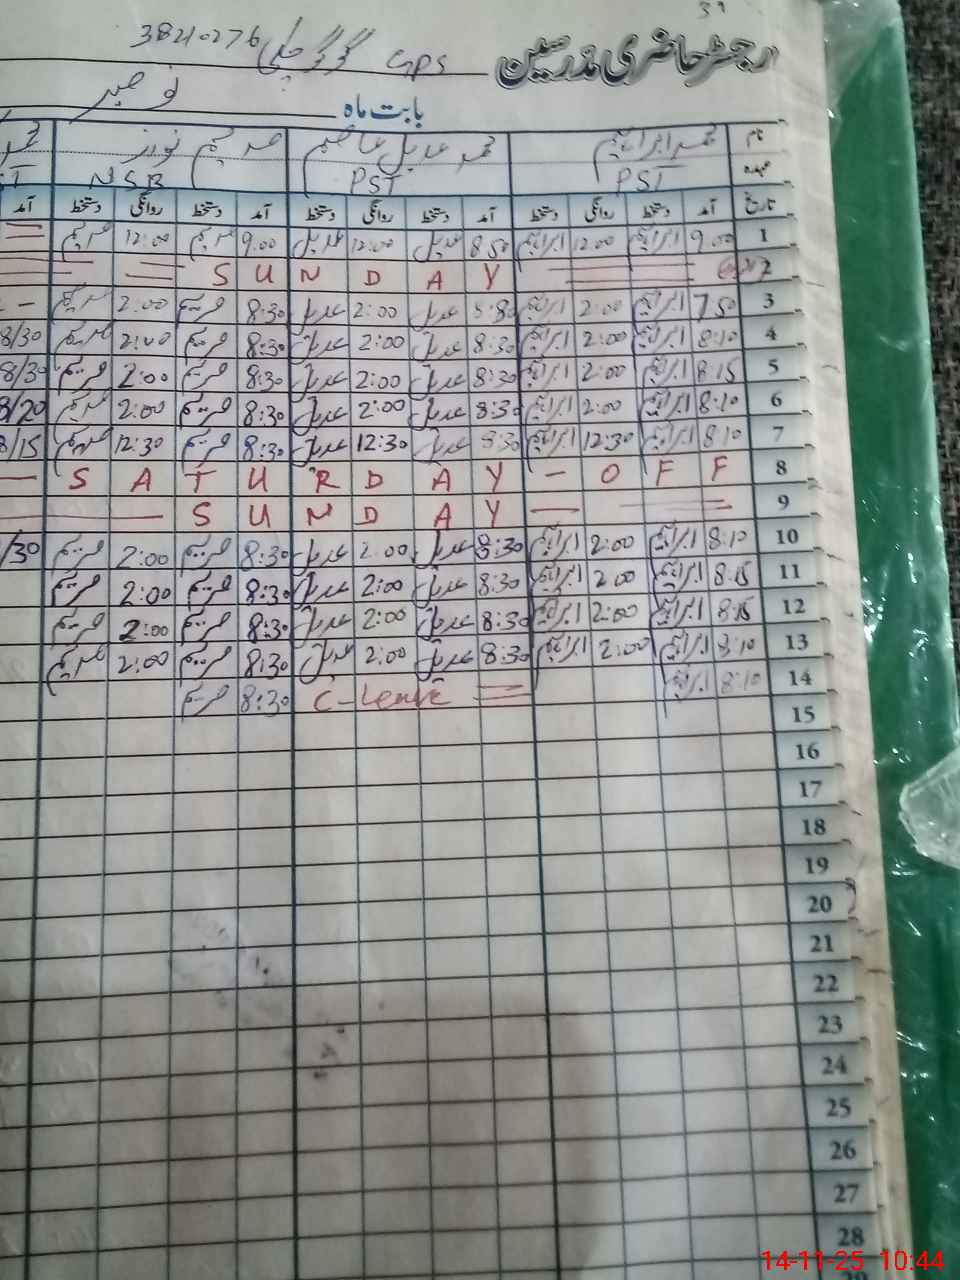 39
رجسٹر حاضری مدرسین GPS 38210276
بابت ماہ نومبر
نام محمد ابراہیم محمد عدیل عاصم مریم نورز
عہدہ PST PST NSB
تاریخ آمد دستخط روانگی دستخط آمد دستخط روانگی دستخط آمد دستخط روانگی دستخط آمد
1 9.00 ابراہیم 12:00 ابراہیم 8:50 عدیل 12:00 عدیل 9.00 مریم 12:00 مریم
2 S U N D A Y
3 7:50 ابراہیم 2:00 ابراہیم 8:30 عدیل 2:00 عدیل 8:30 مریم 2:00 مریم -
4 8:10 ابراہیم 2:00 ابراہیم 8:30 عدیل 2:00 عدیل 8:30 مریم 2:00 مریم 8/30
5 8:15 ابراہیم 2:00 ابراہیم 8:30 عدیل 2:00 عدیل 8:30 مریم 2:00 مریم 8/30
6 8:10 ابراہیم 2:00 ابراہیم 8:30 عدیل 2:00 عدیل 8:30 مریم 2:00 مریم 8/20
7 8:10 ابراہیم 12:30 ابراہیم 8:30 عدیل 12:30 عدیل 8:30 مریم 12:30 مریم 8/15
8 - S A T U R D A Y - O F F
9 S U N D A Y
10 8:10 ابراہیم 2:00 ابراہیم 8:30 عدیل 2:00 عدیل 8:30 مریم 2:00 مریم /30
11 8:15 ابراہیم 2:00 ابراہیم 8:30 عدیل 2:00 عدیل 8:30 مریم 2:00 مریم
12 8:15 ابراہیم 2:00 ابراہیم 8:30 عدیل 2:00 عدیل 8:30 مریم 2:00 مریم
13 8:10 ابراہیم 2:00 ابراہیم 8:30 عدیل 2:00 عدیل 8:30 مریم 2:00 مریم
14 8:10 ابراہیم C-Leave 8:30 مریم
15
16
17
18
19
20
21
22
23
24
25
26
27
28
14-11-25 10:44